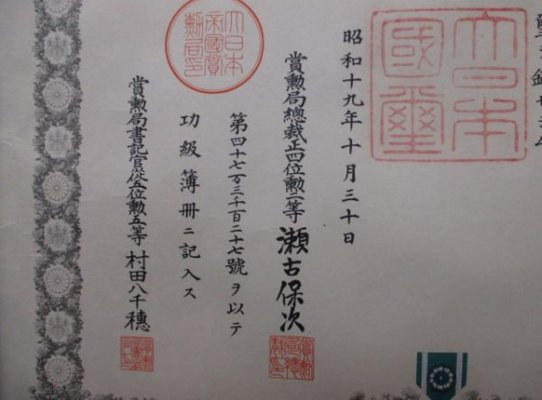 大日本國璽
昭和十九年十月三十日
賞勳局總裁正四位勳一等瀬古保次
大日本帝國賞勳局印
第四十七万三千百二十七號ヲ以テ
功級簿冊ニ記入ス
賞勳局書記官從五位勳五等村田八千穗